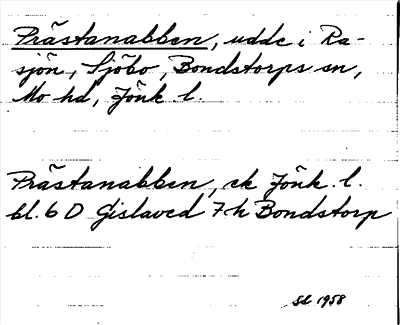 Prästanabben, udde i Ra-
sjön, Sjöbo, Bondstorps sn,
Mo hd, Jönk. l.
Prästanabben, ek Jönk. l.
bl. 6 D Gislaved 7h Bondstorp
Sd 1958